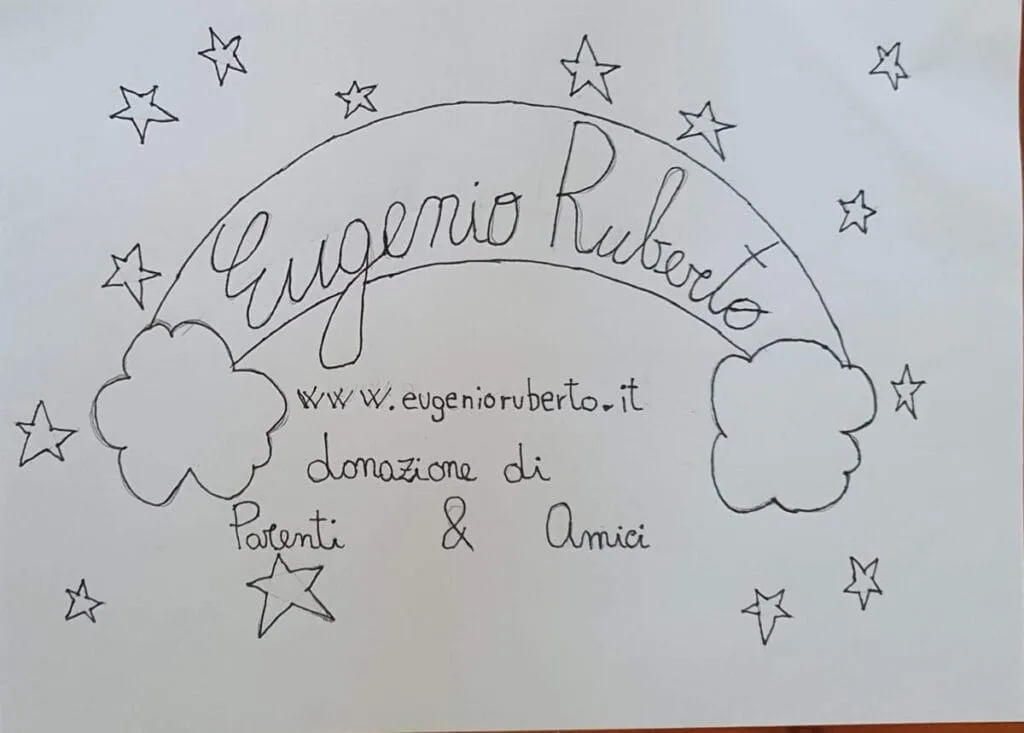 Eugenio Ruberto
www.eugenioruberto.it
donazione di
Parenti & Amici